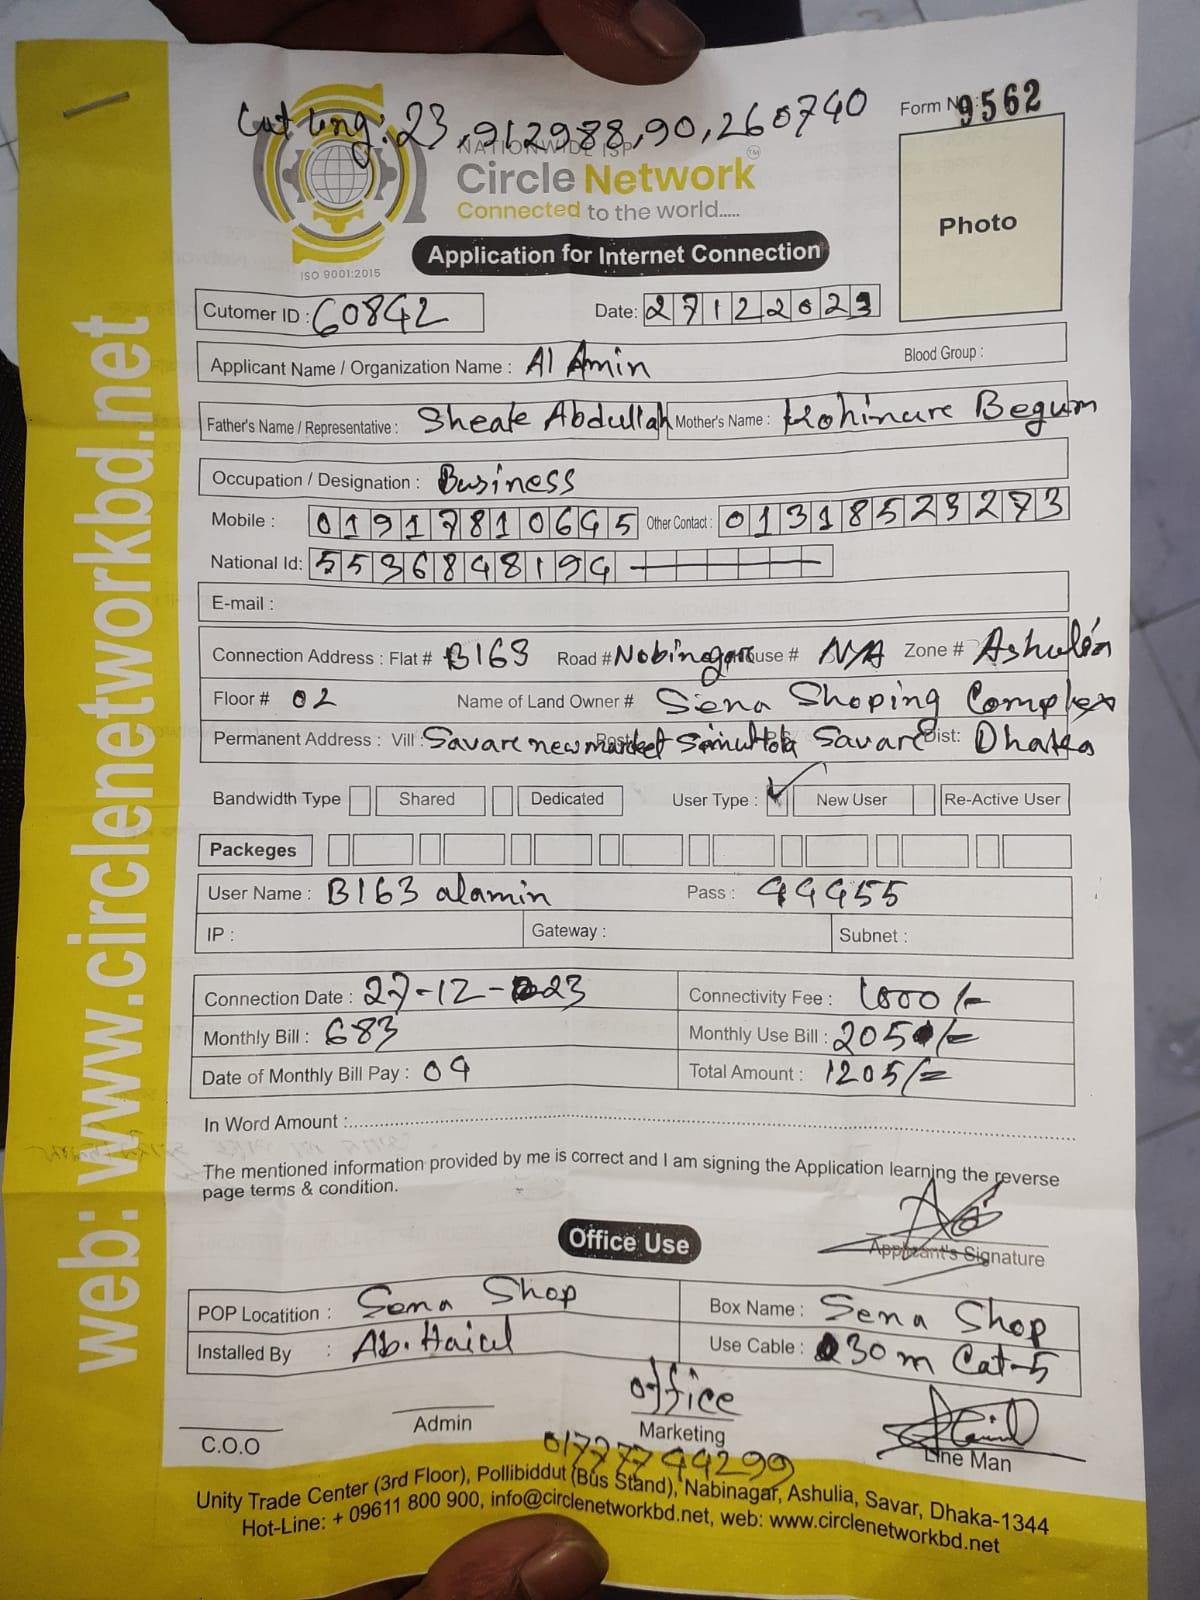 Form No: 9562
Cat ling: 23.912988,90.260740
NATIONWIDE ISP
Circle Network
TM
Connected to the world.....
ISO 9001:2015
Photo
Application for Internet Connection
Cutomer ID : 60842
Date: 27122023
Applicant Name / Organization Name : Al Amin
Blood Group :
Father's Name / Representative : Sheake Abdullah Mother's Name : Kohinure Begum
Occupation / Designation : Business
Mobile : 01917810645 Other Contact : 01318529273
National Id: 5536848194
E-mail :
Connection Address : Flat # B163 Road # Nobinogor House # N/A Zone # Ashulia
Floor # 02 Name of Land Owner # Sena Shoping Complex
Permanent Address : Vill : Savare new market Simultola Savare Dist: Dhaka
Bandwidth Type Shared Dedicated User Type : ✓ New User Re-Active User
Packeges
User Name : B163 alamin Pass : 44455
IP : Gateway : Subnet :
Connection Date : 27-12-23 Connectivity Fee : 1000/-
Monthly Bill : 683 Monthly Use Bill : 205/-
Date of Monthly Bill Pay : 04 Total Amount : 1205/=
In Word Amount :
The mentioned information provided by me is correct and I am signing the Application learning the reverse
page terms & condition.
Applicant's Signature
Office Use
POP Locatition : Sena Shop Box Name : Sena Shop
Installed By : Ab. Haiul Use Cable : 30m Cat-5
office
C.O.O Admin Marketing Line Man
01777744299
Unity Trade Center (3rd Floor), Pollibiddut (Bus Stand), Nabinagar, Ashulia, Savar, Dhaka-1344
Hot-Line: + 09611 800 900, info@circlenetworkbd.net, web: www.circlenetworkbd.net
web: www.circlenetworkbd.net